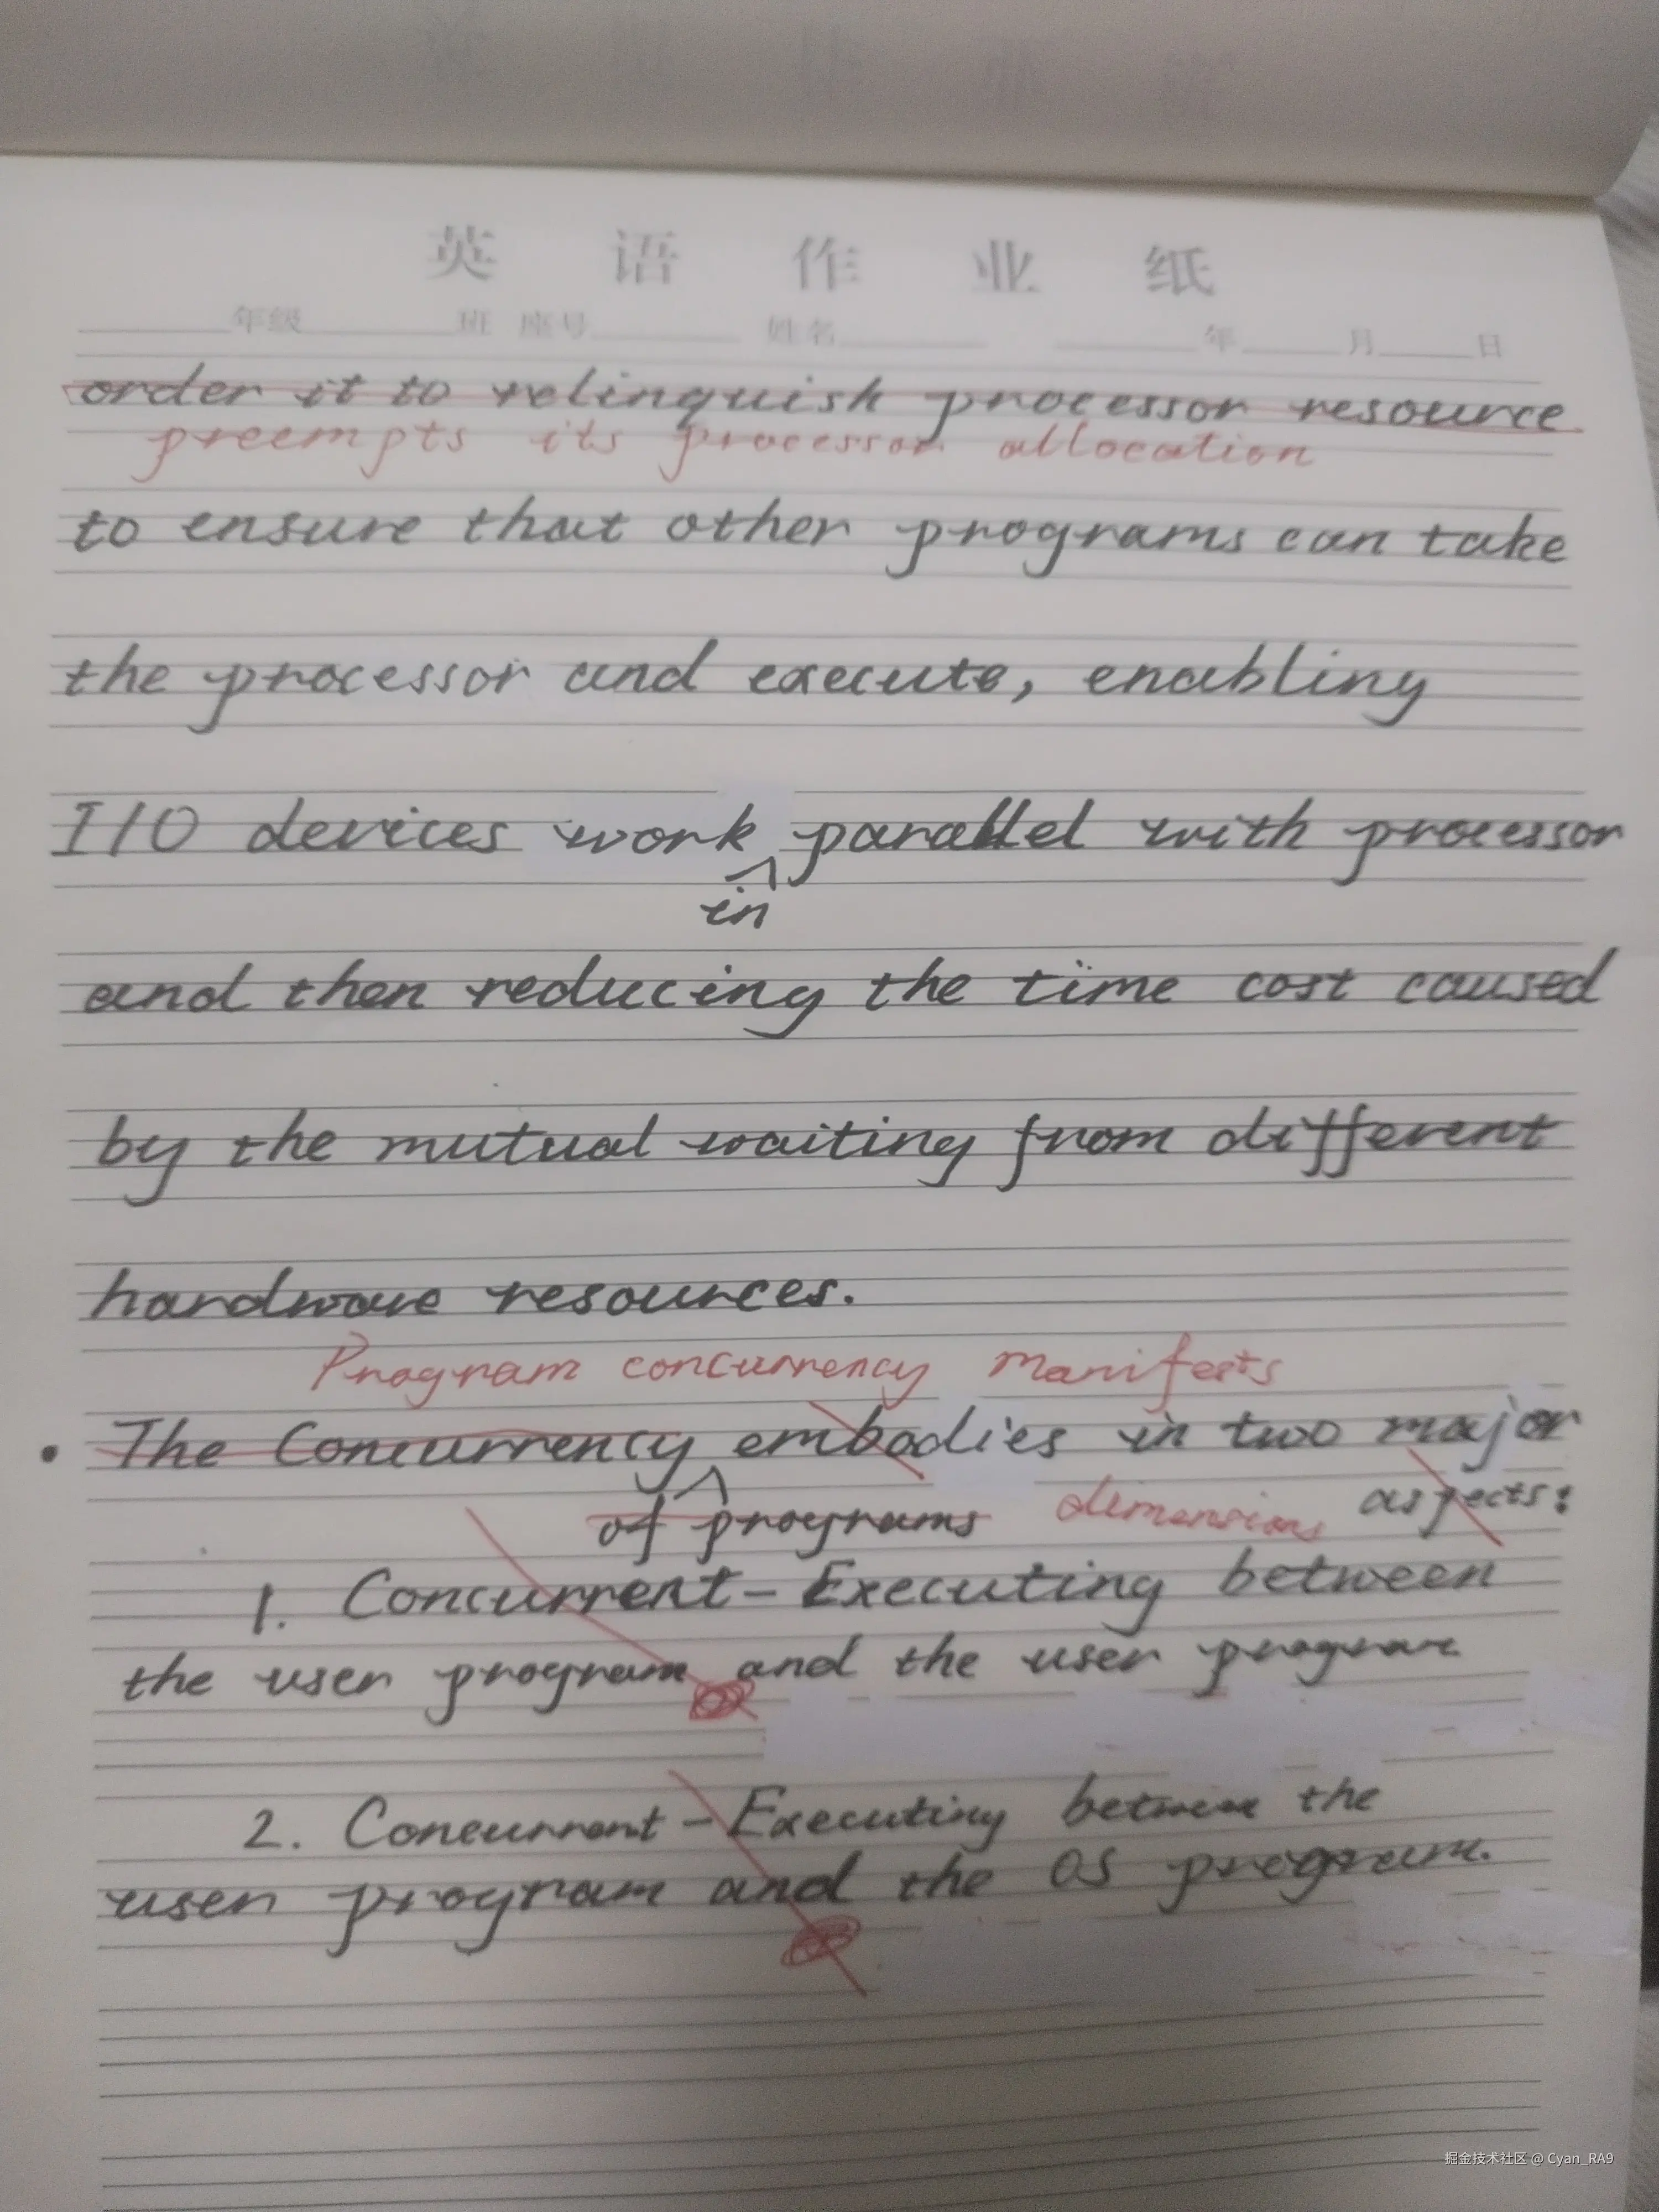 英 语 作 业 纸
年级 班 座号 姓名 年 月 日
order it to relinquish processor resource
preempts its processor allocation
to ensure that other programs can take
the processor and execute, enabling
I/O devices work parallel with processor
in
and then reducing the time cost caused
by the mutual waiting from different
hardware resources.
Program concurrency manifests
• The Concurrency embodies in two major
of programs dimensions aspects:
1. Concurrent-Executing between
the user program and the user program
2. Concurrent-Executing between the
user program and the OS program.
掘金技术社区 @ Cyan_RA9